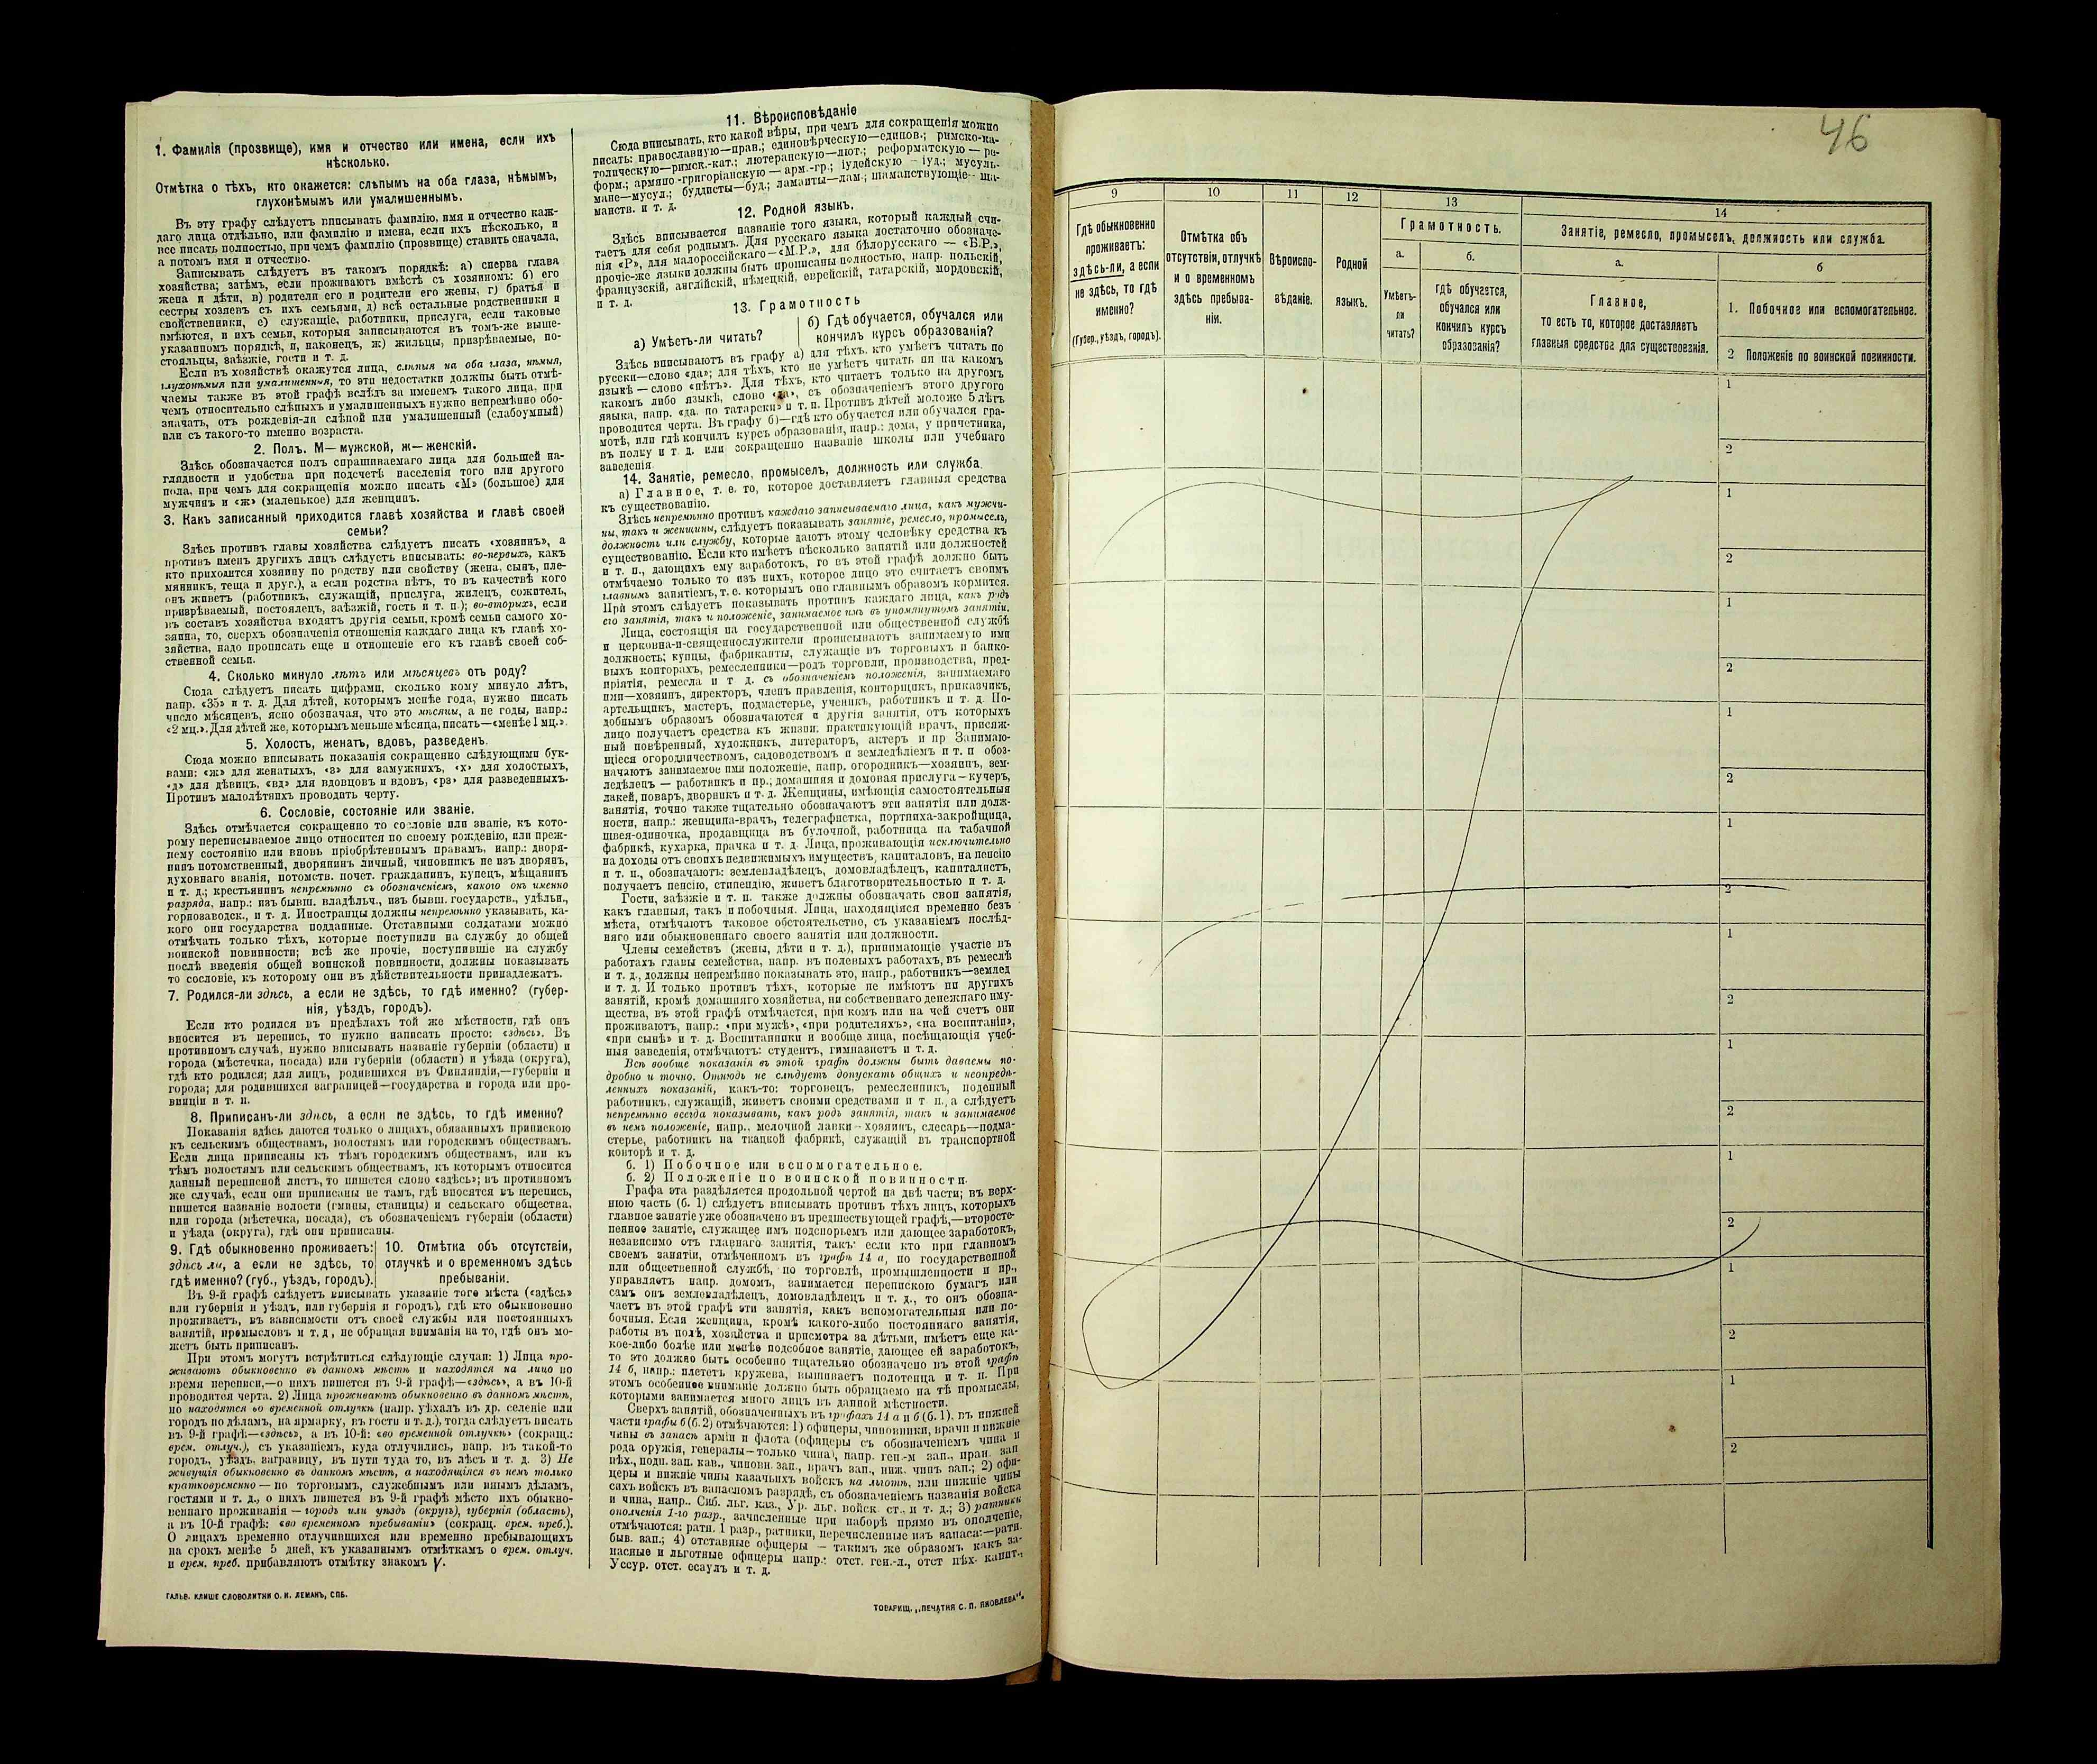 1. Фамилія (прозвище), имя и отчество или имена, если ихъ
нѣсколько.
Отмѣтка о тѣхъ, кто окажется: слѣпымъ на оба глаза, нѣмымъ,
глухонѣмымъ или умалишеннымъ.
Въ эту графу слѣдуетъ вписывать фамилію, имя и отчество каж-
даго лица отдѣльно, или фамилію и имена, если ихъ нѣсколько, и
все писать полностью, при чемъ фамилію (прозвище) ставить сначала,
а потомъ имя и отчество.
Записывать слѣдуетъ въ такомъ порядкѣ: а) сперва глава
хозяйства; затѣмъ, если проживаютъ вмѣстѣ съ хозяиномъ: б) его
жена и дѣти, в) родители его и родители его жены, г) братья и
сестры хозяевъ съ ихъ семьями, д) всѣ остальные родственники и
свойственники, е) служащіе, работники, прислуга, если таковые
имѣются, и ихъ семьи, которыя записываются въ томъ-же выше-
указанномъ порядкѣ, и, наконецъ, ж) жильцы, призрѣваемые, по-
стояльцы, заѣзжіе, гости и т. д.
Если въ хозяйствѣ окажутся лица, слѣпыя на оба глаза, нѣмыя,
глухонѣмыя или умалишенныя, то эти недостатки должны быть отмѣ-
чаемы также въ этой графѣ вслѣдъ за именемъ такого лица, при
чемъ относительно слѣпыхъ и умалишенныхъ нужно непремѣнно обо-
значать, отъ рожденія-ли слѣпой или умалишенный (слабоумный)
или съ такого-то именно возраста.
2. Полъ. М—мужской, ж—женскій.
Здѣсь обозначается полъ спрашиваемаго лица для большей на-
глядности и удобства при подсчетѣ населенія того или другого
пола, при чемъ для сокращенія можно писать «М» (большое) для
мужчинъ и «ж» (маленькое) для женщинъ.
3. Какъ записанный приходится главѣ хозяйства и главѣ своей
семьи?
Здѣсь противъ главы хозяйства слѣдуетъ писать «хозяинъ», а
противъ именъ другихъ лицъ слѣдуетъ вписывать: во-первыхъ, какъ
кто приходится хозяину по родству или свойству (жена, сынъ, пле-
мянникъ, теща и друг.), а если родства нѣтъ, то въ качествѣ кого
онъ живетъ (работникъ, служащій, прислуга, жилецъ, сожитель,
призрѣваемый, постоялецъ, заѣзжій, гость и т. п.); во-вторыхъ, если
въ составъ хозяйства входятъ другія семьи, кромѣ семьи самого хо-
зяина, то, сверхъ обозначенія отношенія каждаго лица къ главѣ хо-
зяйства, надо прописать еще и отношеніе его къ главѣ своей соб-
ственной семьи.
4. Сколько минуло лѣтъ или мѣсяцевъ отъ роду?
Сюда слѣдуетъ писать цифрами, сколько кому минуло лѣтъ,
напр. «35» и т. д. Для дѣтей, которымъ менѣе года, нужно писать
число мѣсяцевъ, ясно обозначая, что это мѣсяцы, а не годы, напр.:
«2 мц.». Для дѣтей же, которымъ меньше мѣсяца, писать—«менѣе 1 мц.».
5. Холостъ, женатъ, вдовъ, разведенъ.
Сюда можно вписывать показанія сокращенно слѣдующими бук-
вами: «ж» для женатыхъ, «з» для замужнихъ, «х» для холостыхъ,
«д» для дѣвицъ, «вд» для вдовцовъ и вдовъ, «рз» для разведенныхъ.
Противъ малолѣтнихъ проводить черту.
6. Сословіе, состояніе или званіе.
Здѣсь отмѣчается сокращенно то сословіе или званіе, къ кото-
рому переписываемое лицо относится по своему рожденію, или преж-
нему состоянію или вновь пріобрѣтеннымъ правамъ, напр.: дворя-
нинъ потомственный, дворянинъ личный, чиновникъ не изъ дворянъ,
духовнаго званія, потомств. почет. гражданинъ, купецъ, мѣщанинъ
и т. д.; крестьянинъ непремѣнно съ обозначеніемъ, какого онъ именно
разряда, напр.: изъ бывш. владѣльч., изъ бывш. государств., удѣльн.,
горнозаводск., и т. д. Иностранцы должны непремѣнно указывать, ка-
кого они государства подданные. Отставными солдатами можно
отмѣчать только тѣхъ, которые поступили на службу до общей
воинской повинности; всѣ же прочіе, поступившіе на службу
послѣ введенія общей воинской повинности, должны показывать
то сословіе, къ которому они въ дѣйствительности принадлежатъ.
7. Родился-ли здѣсь, а если не здѣсь, то гдѣ именно? (губер-
нія, уѣздъ, городъ).
Если кто родился въ предѣлахъ той же мѣстности, гдѣ онъ
вносится въ перепись, то нужно написать просто: «здѣсь». Въ
противномъ случаѣ, нужно вписывать названіе губерніи (области) и
города (мѣстечка, посада) или губерніи (области) и уѣзда (округа),
гдѣ кто родился; для лицъ, родившихся въ Финляндіи,—губерніи и
города; для родившихся заграницей—государства и города или про-
винціи и т. п.
8. Приписанъ-ли здѣсь, а если не здѣсь, то гдѣ именно?
Показанія здѣсь даются только о лицахъ, обязанныхъ припискою
къ сельскимъ обществамъ, волостямъ или городскимъ обществамъ.
Если лица приписаны къ тѣмъ городскимъ обществамъ, или къ
тѣмъ волостямъ или сельскимъ обществамъ, къ которымъ относится
данный переписной листъ, то пишется слово «здѣсь»; въ противномъ
же случаѣ, если они приписаны не тамъ, гдѣ вносятся въ перепись,
пишется названіе волости (гмины, станицы) и сельскаго общества,
или города (мѣстечка, посада), съ обозначеніемъ губерніи (области)
и уѣзда (округа), гдѣ они приписаны.
9. Гдѣ обыкновенно проживаетъ:
здѣсь ли, а если не здѣсь, то
гдѣ именно? (губ., уѣздъ, городъ).
10. Отмѣтка объ отсутствіи,
отлучкѣ и о временномъ здѣсь
пребываніи.
Въ 9-й графѣ слѣдуетъ вписывать указаніе того мѣста («здѣсь»
или губернія и уѣздъ, или губернія и городъ), гдѣ кто обыкновенно
проживаетъ, въ зависимости отъ своей службы или постоянныхъ
занятій, промысловъ и т. д, не обращая вниманія на то, гдѣ онъ мо-
жетъ быть приписанъ.
При этомъ могутъ встрѣтиться слѣдующіе случаи: 1) Лица про-
живаютъ обыкновенно въ данномъ мѣстѣ и находятся на лицо во
время переписи,—о нихъ пишется въ 9-й графѣ—«здѣсь», а въ 10-й
проводится черта. 2) Лица проживаютъ обыкновенно въ данномъ мѣстѣ,
но находятся во временной отлучкѣ (напр. уѣхалъ въ др. селеніе или
городъ по дѣламъ, на ярмарку, въ гости и т. д.), тогда слѣдуетъ писать
въ 9-й графѣ—«здѣсь», а въ 10-й: «во временной отлучкѣ» (сокращ.:
врем. отлуч.), съ указаніемъ, куда отлучились, напр. въ такой-то
городъ, уѣздъ, заграницу, въ пути туда то, въ лѣсъ и т. д. 3) Не
живущія обыкновенно въ данномъ мѣстѣ, а находящіяся въ немъ только
кратковременно — по торговымъ, служебнымъ или инымъ дѣламъ,
гостями и т. д., о нихъ пишется въ 9-й графѣ мѣсто ихъ обыкно-
веннаго проживанія — городъ или уѣздъ (округъ), губернія (область),
а въ 10-й графѣ: «во временномъ пребываніи» (сокращ. врем. преб.).
О лицахъ временно отлучившихся или временно пребывающихъ
на срокъ менѣе 5 дней, къ указаннымъ отмѣткамъ о врем. отлуч.
и врем. преб. прибавляютъ отмѣтку знакомъ V.
ГАЛЬВ. КЛИШЕ СЛОВОЛИТНИ О. И. ЛЕМАНЪ, СПБ.
11. Вѣроисповѣданіе
Сюда вписывать, кто какой вѣры, при чемъ для сокращенія можно
писать: православную—прав.; единовѣрческую—единов.; римско-ка-
толическую—римск.-кат.; лютеранскую—лют.; реформатскую — ре-
форм.; армяно-григоріанскую — арм.-гр.; іудейскую – іуд.; мусуль-
мане—мусул.; буддисты—буд.; ламаиты—лам.; шаманствующіе— ша-
манств. и т. д.
12. Родной языкъ.
Здѣсь вписывается названіе того языка, который каждый счи-
таетъ для себя роднымъ. Для русскаго языка достаточно обозначе-
нія «Р», для малороссійскаго—«М.Р.», для бѣлорусскаго — «Б.Р.»,
прочіе-же языки должны быть прописаны полностью, напр. польскій,
французскій, англійскій, нѣмецкій, еврейскій, татарскій, мордовскій,
и т. д.
13. Грамотность
а) Умѣетъ-ли читать?
б) Гдѣ обучается, обучался или
кончилъ курсъ образованія?
Здѣсь вписываютъ въ графу а) для тѣхъ, кто умѣетъ читать по
русски—слово «да»; для тѣхъ, кто не умѣетъ читать ни на какомъ
языкѣ — слово «нѣтъ». Для тѣхъ, кто читаетъ только на другомъ
какомъ либо языкѣ, слово «да», съ обозначеніемъ этого другого
языка, напр. «да, по татарски» и т. п. Противъ дѣтей моложе 5 лѣтъ
проводится черта. Въ графу б)—гдѣ кто обучается или обучался гра-
мотѣ, или гдѣ кончилъ курсъ образованія, напр.: дома, у причетника,
въ полку и т. д. или сокращенно названіе школы или учебнаго
заведенія.
14. Занятіе, ремесло, промыселъ, должность или служба.
а) Главное, т. е. то, которое доставляетъ главныя средства
къ существованію.
Здѣсь непремѣнно противъ каждаго записываемаго лица, какъ мужчи-
ны, такъ и женщины, слѣдуетъ показывать занятіе, ремесло, промыселъ,
должность или службу, которые даютъ этому человѣку средства къ
существованію. Если кто имѣетъ нѣсколько занятій или должностей
и т. п., дающихъ ему заработокъ, то въ этой графѣ должно быть
отмѣчаемо только то изъ нихъ, которое лицо это считаетъ своимъ
главнымъ занятіемъ, т. е. которымъ оно главнымъ образомъ кормится.
При этомъ слѣдуетъ показывать противъ каждаго лица, какъ родъ
его занятія, такъ и положеніе, занимаемое имъ въ упомянутомъ занятіи.
Лица, состоящія на государственной или общественной службѣ
и церковно-и-священнослужители прописываютъ занимаемую ими
должность; купцы, фабриканты, служащіе въ торговыхъ и банко-
выхъ конторахъ, ремесленники—родъ торговли, производства, пред-
пріятія, ремесла и т д. съ обозначеніемъ положенія, занимаемаго
ими—хозяинъ, директоръ, членъ правленія, конторщикъ, приказчикъ,
артельщикъ, мастеръ, подмастерье, ученикъ, работникъ и т. д. По-
добнымъ образомъ обозначаются и другія занятія, отъ которыхъ
лицо получаетъ средства къ жизни: практикующій врачъ, присяж-
ный повѣренный, художникъ, литераторъ, актеръ и пр Занимаю-
щіеся огородничествомъ, садоводствомъ и земледѣліемъ и т. п обоз-
начаютъ занимаемое ими положеніе, напр. огородникъ—хозяинъ, зем-
ледѣлецъ — работникъ и пр.; домашняя и домовая прислуга—кучеръ,
лакей, поваръ, дворникъ и т. д. Женщины, имѣющія самостоятельныя
занятія, точно также тщательно обозначаютъ эти занятія или долж-
ности, напр.: женщина-врачъ, телеграфистка, портниха-закройщица,
швея-одиночка, продавщица въ булочной, работница на табачной
фабрикѣ, кухарка, прачка и т. д. Лица, проживающія исключительно
на доходы отъ своихъ недвижимыхъ имуществъ, капиталовъ, на пенсію
и т. п., обозначаютъ: землевладѣлецъ, домовладѣлецъ, капиталистъ,
получаетъ пенсію, стипендію, живетъ благотворительностью и т. д.
Гости, заѣзжіе и т. п. также должны обозначать свои занятія,
какъ главныя, такъ и побочныя. Лица, находящіяся временно безъ
мѣста, отмѣчаютъ таковое обстоятельство, съ указаніемъ послѣд-
няго или обыкновеннаго своего занятія или должности.
Члены семействъ (жены, дѣти и т. д.), принимающіе участіе въ
работахъ главы семейства, напр. въ полевыхъ работахъ, въ ремеслѣ
и т. д., должны непремѣнно показывать это, напр., работникъ—землед
и т. д. И только противъ тѣхъ, которые не имѣютъ ни другихъ
занятій, кромѣ домашняго хозяйства, ни собственнаго денежнаго иму-
щества, въ этой графѣ отмѣчается, при комъ или на чей счетъ они
проживаютъ, напр.: «при мужѣ», «при родителяхъ», «на воспитаніи»,
«при сынѣ» и т. д. Воспитанники и вообще лица, посѣщающія учеб-
ныя заведенія, отмѣчаютъ: студентъ, гимназистъ и т. д.
Всѣ вообще показанія въ этой графѣ должны быть даваемы по-
дробно и точно. Отнюдь не слѣдуетъ допускать общихъ и неопредѣ-
ленныхъ показаній, какъ-то: торговецъ, ремесленникъ, поденный
работникъ, служащій, живетъ своими средствами и т п., а слѣдуетъ
непремѣнно всегда показывать, какъ родъ занятія, такъ и занимаемое
въ немъ положеніе, напр., мелочной лавки—хозяинъ, слесарь—подма-
стерье, работникъ на ткацкой фабрикѣ, служащій въ транспортной
конторѣ и т. д.
б. 1) Побочное или вспомогательное.
б. 2) Положеніе по воинской повинности.
Графа эта раздѣляется продольной чертой на двѣ части; въ верх-
нюю часть (б. 1) слѣдуетъ вписывать противъ тѣхъ лицъ, которыхъ
главное занятіе уже обозначено въ предшествующей графѣ,—второсте-
пенное занятіе, служащее имъ подспорьемъ или дающее заработокъ,
независимо отъ главнаго занятія, такъ: если кто при главномъ
своемъ занятіи, отмѣченномъ въ графѣ 14 а, по государственной
или общественной службѣ, по торговлѣ, промышленности и пр.,
управляетъ напр. домомъ, занимается перепискою бумагъ или
самъ онъ землевладѣлецъ, домовладѣлецъ и т. д., то онъ обозна-
чаетъ въ этой графѣ эти занятія, какъ вспомогательныя или по-
бочныя. Если женщина, кромѣ какого-либо постояннаго занятія,
работы въ полѣ, хозяйства и присмотра за дѣтьми, имѣетъ еще ка-
кое-либо болѣе или менѣе подсобное занятіе, дающее ей заработокъ,
то это должно быть особенно тщательно обозначено въ этой графѣ
14 б, напр.: плететъ кружева, вышиваетъ полотенца и т. п. При
этомъ особенное вниманіе должно быть обращаемо на тѣ промыслы,
которыми занимается много лицъ въ данной мѣстности.
Сверхъ занятій, обозначенныхъ въ графахъ 14 а и б (б. 1), въ нижней
части графы б (б. 2) отмѣчаются: 1) офицеры, чиновники, врачи и нижніе
чины въ запасѣ арміи и флота (офицеры съ обозначеніемъ чина и
рода оружія, генералы—только чина), напр. ген.-м зап., прап. зап
пѣх., подп. зап. кав., чиновн. зап., врачъ зап., ниж. чинъ зап.; 2) офи-
церы и нижніе чины казачьихъ войскъ на льготѣ, или нижніе чины
сахъ войскъ въ запасномъ разрядѣ, съ обозначеніемъ названія войска
и чина, напр.. Сиб. льг. каз., Ур. льг. войск. ст., и т. д.; 3) ратники
ополченія 1-го разр., зачисленные при наборѣ прямо въ ополченіе,
отмѣчаются: ратн. 1 разр., ратники, перечисленные изъ запаса:—ратн.
быв. зап.; 4) отставные офицеры — такимъ же образомъ, какъ за-
пасные и льготные офицеры напр.: отст. ген.-л., отст пѣх. капит.,
Уссур. отст. есаулъ и т. д.
ТОВАРИЩ. „ПЕЧАТНЯ С. П. ЯКОВЛЕВА“.
46
9
10
11
12
13
14
Гдѣ обыкновенно
проживаетъ:
здѣсь-ли, а если
не здѣсь, то гдѣ
именно?
(Губер., уѣздъ, городъ).
Отмѣтка объ
отсутствіи, отлучкѣ
и о временномъ
здѣсь пребыва-
ніи.
Вѣроиспо-
вѣданіе.
Родной
языкъ.
Грамотность.
а.
Умѣетъ-
ли
читать?
б.
гдѣ обучается,
обучался или
кончилъ курсъ
образованія?
Занятіе, ремесло, промыселъ, должность или служба.
а.
Главное,
то есть то, которое доставляетъ
главныя средства для существованія.
б
1. Побочное или вспомогательное.
2 Положеніе по воинской повинности.
1
2
1
2
1
2
1
2
1
2
1
2
1
2
1
2
1
2
1
2